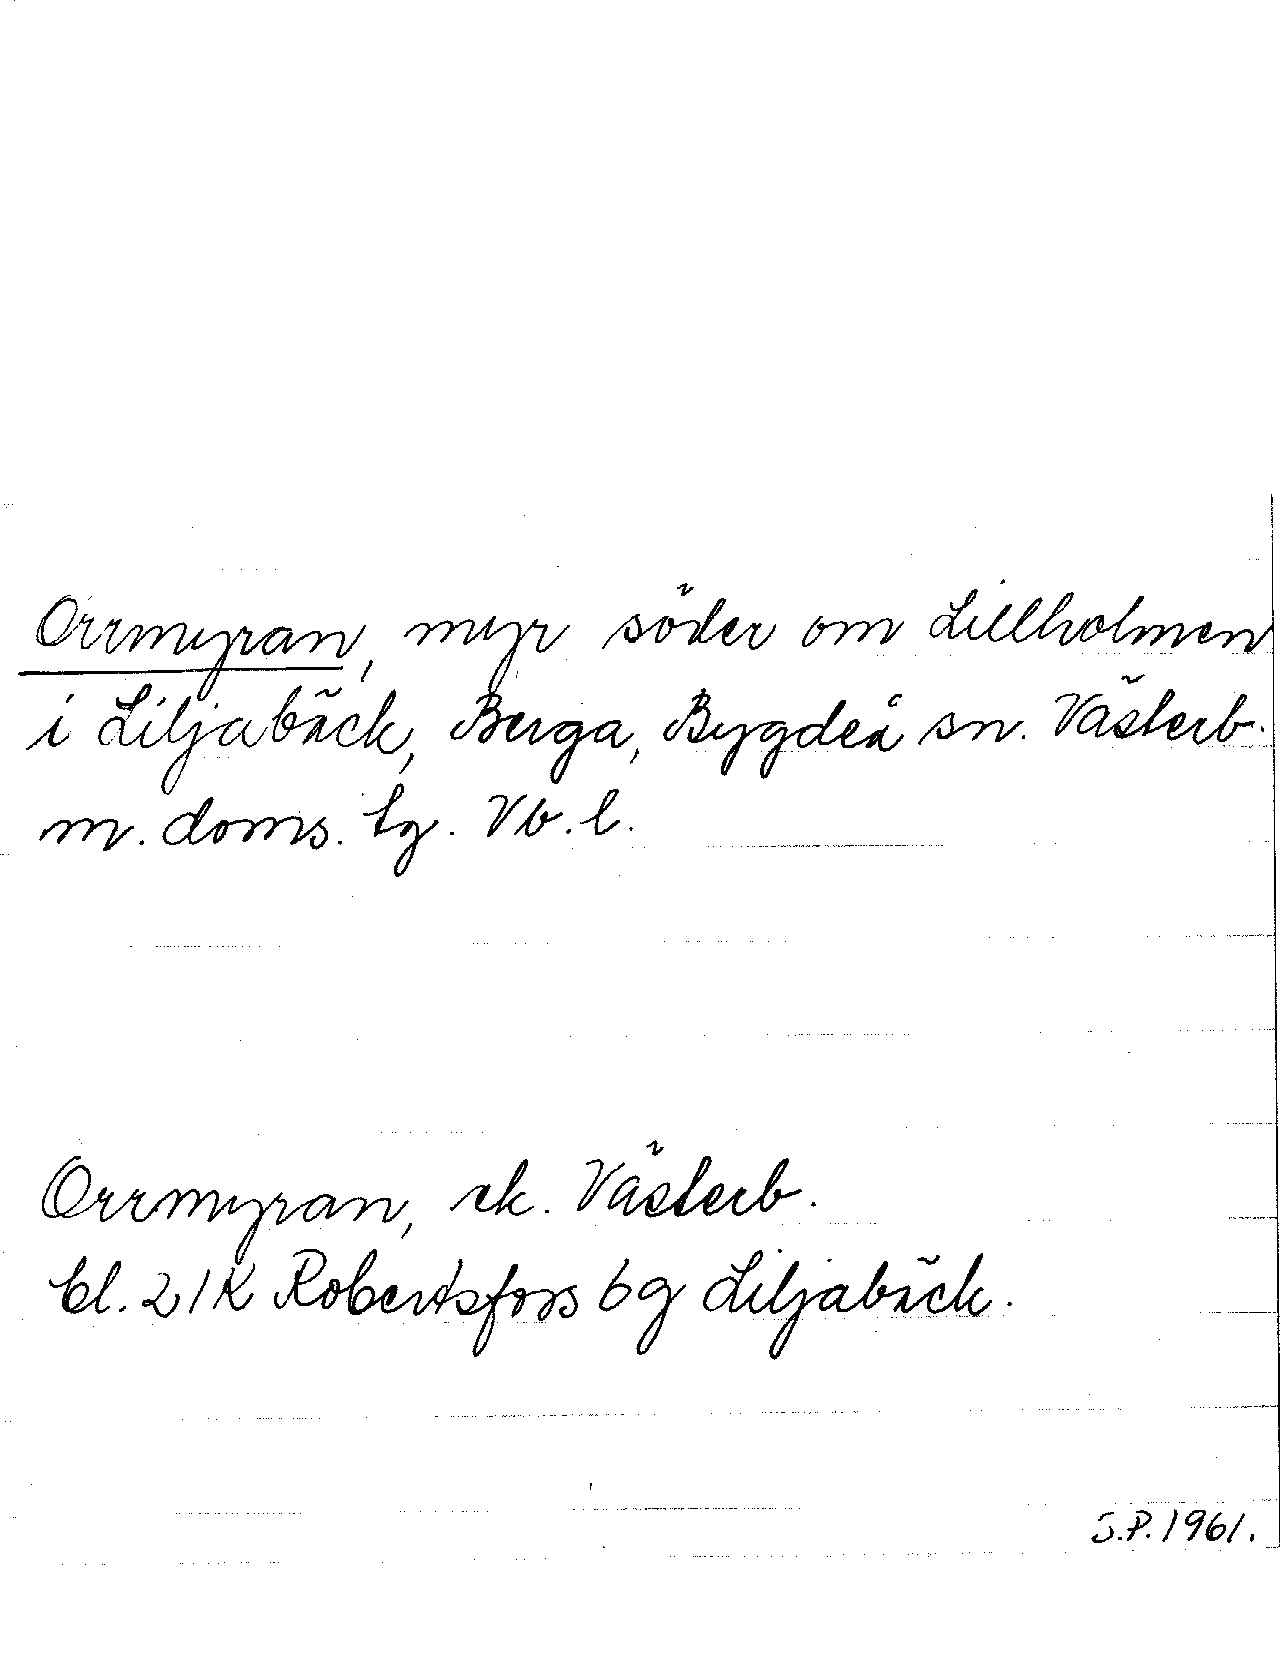 Orrmyran, myr söder om Lillholmen
i Liljabäck, Berga, Bygdeå sn. Västerb.
m. doms. tg. Vb. l.
Orrmyran, ek. Västerb.
bl. 21K Robertsfors 6g Liljabäck.
S.P. 1961.